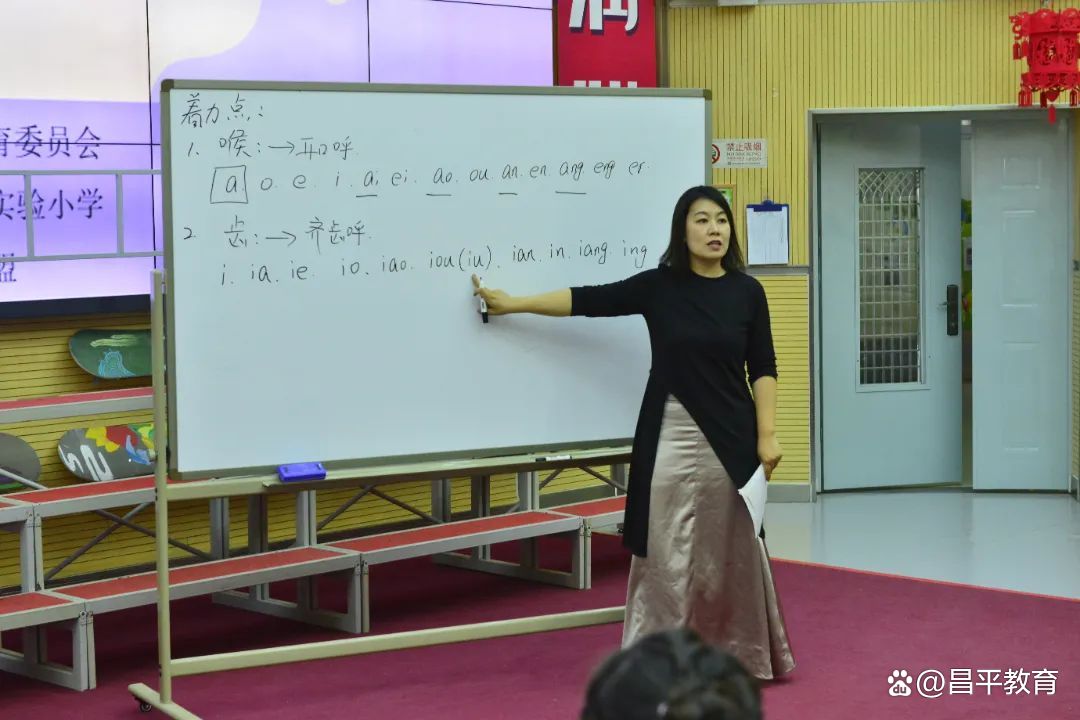 着力点：
1. 喉：→开口呼.
a. o. e. i. ai. ei. ao. ou. an. en. ang. eng. er.
2. 齿：→齐齿呼.
i. ia. ie. io. iao. iou(iu). ian. in. iang. ing
育委员会
实验小学
盟
润
禁止吸烟
@昌平教育